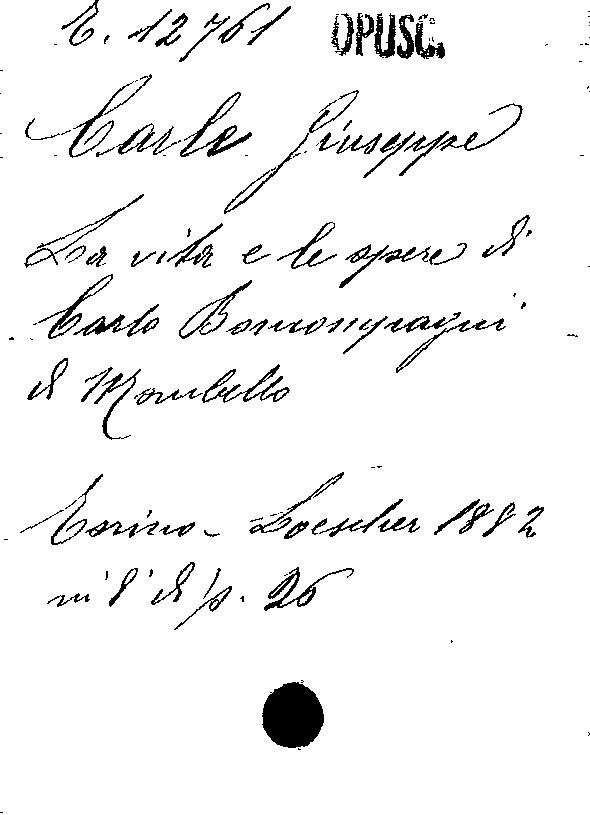 E. 12761 OPUSC.
Carle Giuseppe
La vita e le opere di
Carlo Boncompagni
di Mombello
Torino - Loescher 1882
in 8° di p. 26